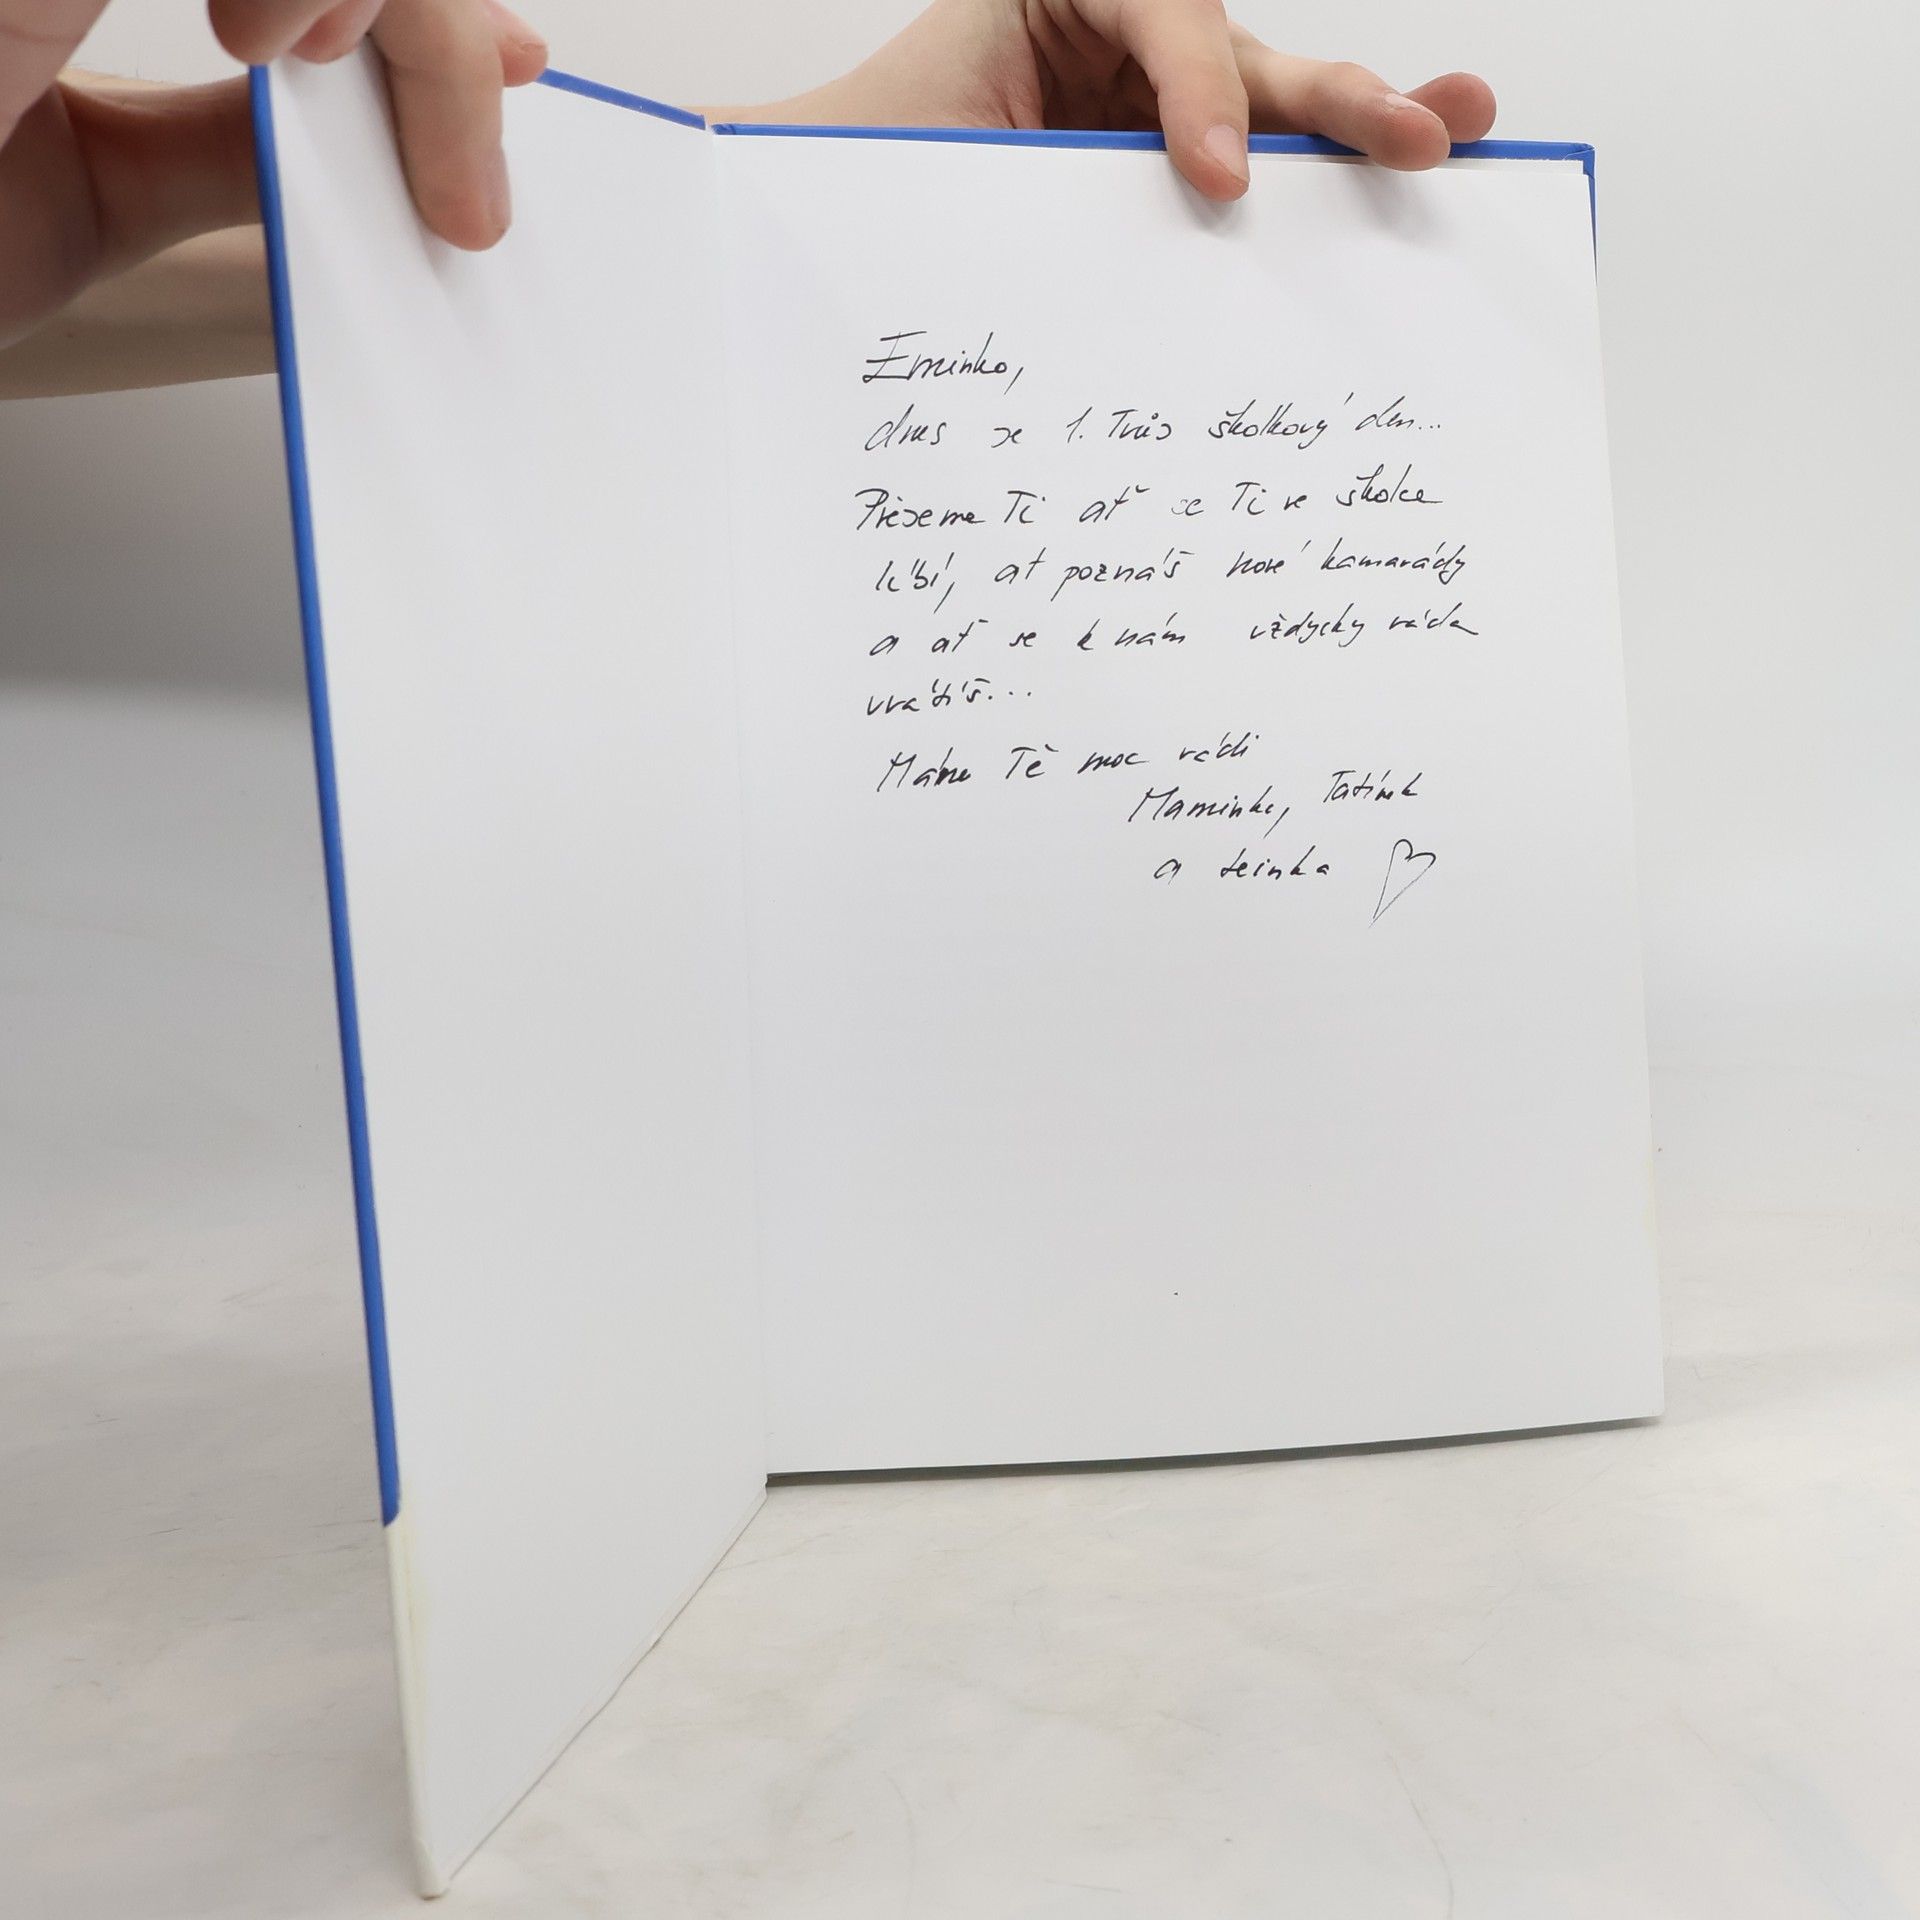 Eminko,
dnes je 1. Tvůj školkový den...
Přejeme Ti ať se Ti ve školce
líbí, ať poznáš nové kamarády
a ať se k nám vždycky ráda
vrátíš...
Máme Tě moc rádi
Maminka, Tatínek
a